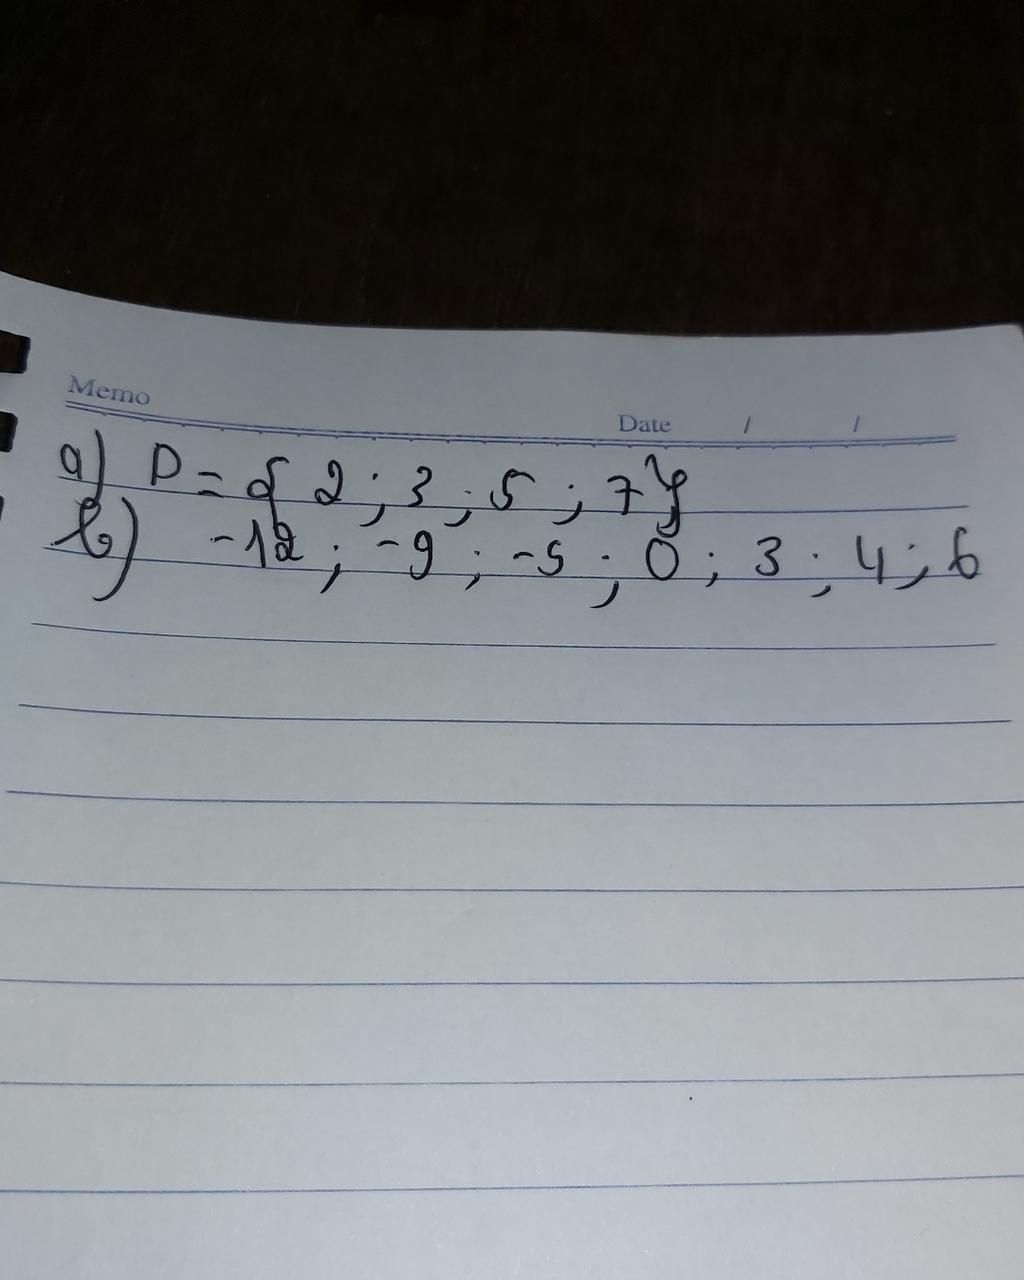 Memo
Date / /
a) D = { 2 ; 3 ; 5 ; 7 }
b) -12 ; -9 ; -5 ; 0 ; 3 ; 4 ; 6